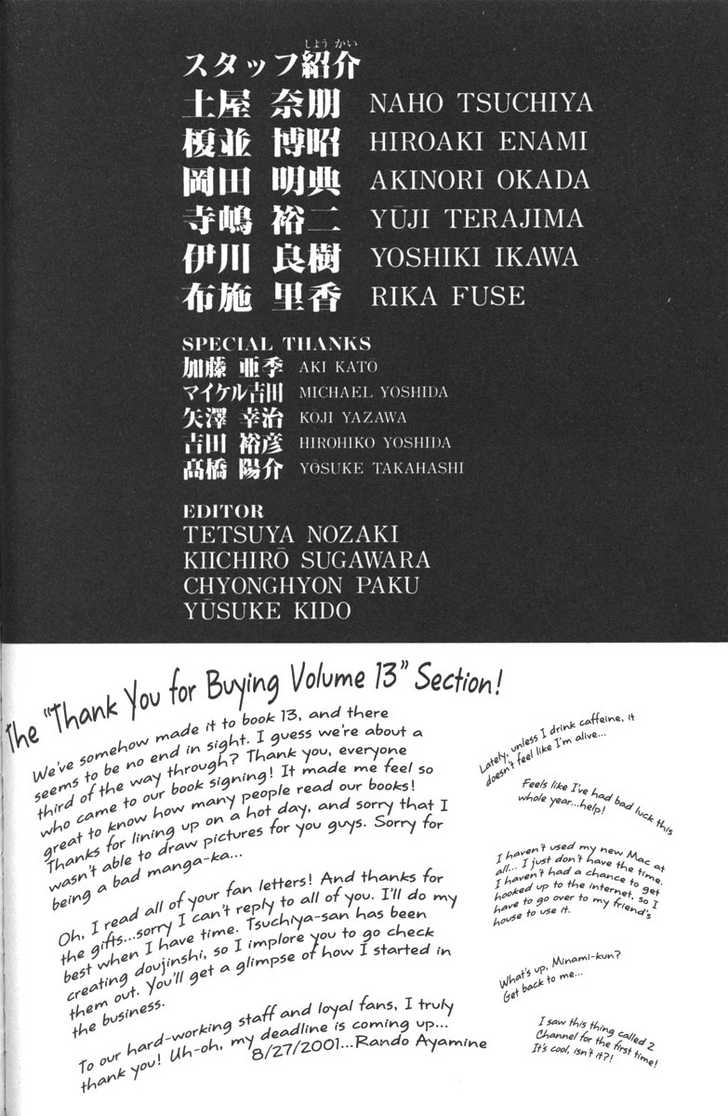 しょうかい
スタッフ紹介
土屋 奈朋 NAHO TSUCHIYA
榎並 博昭 HIROAKI ENAMI
岡田 明典 AKINORI OKADA
寺嶋 裕二 YŪJI TERAJIMA
伊川 良樹 YOSHIKI IKAWA
布施 里香 RIKA FUSE
SPECIAL THANKS
加藤 亜季 AKI KATO
マイケル吉田 MICHAEL YOSHIDA
矢澤 幸治 KŌJI YAZAWA
吉田 裕彦 HIROHIKO YOSHIDA
髙橋 陽介 YŌSUKE TAKAHASHI
EDITOR
TETSUYA NOZAKI
KIICHIRŌ SUGAWARA
CHYONGHYON PAKU
YŪSUKE KIDO
The "Thank You for Buying Volume 13" Section!
We've somehow made it to book 13, and there
seems to be no end in sight. I guess we're about a
third of the way through? Thank you, everyone
who came to our book signing! It made me feel so
great to know how many people read our books!
Thanks for lining up on a hot day, and sorry that I
wasn't able to draw pictures for you guys. Sorry for
being a bad manga-ka...
Oh, I read all of your fan letters! And thanks for
the gifts...sorry I can't reply to all of you. I'll do my
best when I have time. Tsuchiya-san has been
creating doujinshi, so I implore you to go check
them out. You'll get a glimpse of how I started in
the business.
To our hard-working staff and loyal fans, I truly
thank you! Uh-oh, my deadline is coming up...
8/27/2001...Rando Ayamine
Lately, unless I drink caffeine, it
doesn't feel like I'm alive...
Feels like I've had bad luck this
whole year...help!
I haven't used my new Mac at
all... I just don't have the time.
I haven't had a chance to get
hooked up to the internet, so I
have to go over to my friend's
house to use it.
What's up, Minami-kun?
Get back to me...
I saw this thing called 2
Channel for the first time!
It's cool, isn't it?!